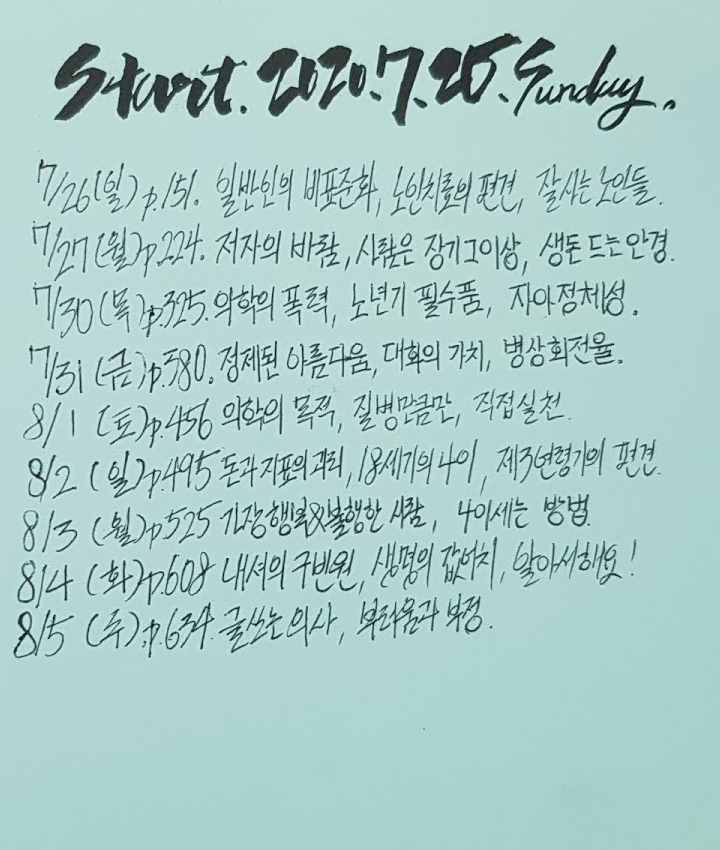 Start. 2020. 7. 25. Sunday..
7/26 (일) p.151. 일반인의 비표준화, 노인치료의 편견, 잘사는 노인들.
7/27 (월) p.224. 저자의 바람, 사람은 장기그이상, 생돈 드는 안경.
7/30 (목) p.325. 의학의 폭력, 노년기 필수품, 자아정체성.
7/31 (금) p.380. 정제된 아름다움, 대화의 가치, 병상회전율.
8/1 (토) p.456 의학의 목적, 질병만큼만, 직접실천.
8/2 (일) p.495 돈과 지표의 괴리, 18세기의 나이, 제3연령기의 편견.
8/3 (월) p.525 긴장행렬&불행한 사람, 나이세는 방법.
8/4 (화) p.608 내셔의 구빈원, 생명의 값어치, 알아서해요!
8/5 (수). p.634. 글쓰는 의사, 부러움과 부정.